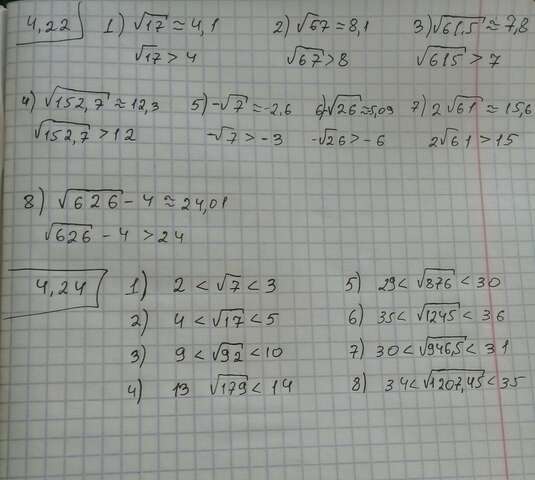 4,22 1) √17 ≈ 4,1 2) √67 = 8,1 3) √61,5 ≈ 7,8
√17 > 4 √67 > 8 √61,5 > 7
4) √152,7 ≈ 12,3 5) -√7 ≈ -2,6 6) -√26 ≈ 5,09 7) 2√61 ≈ 15,6
√152,7 > 12 -√7 > -3 -√26 > -6 2√61 > 15
8) √626 - 4 ≈ 24,01
√626 - 4 > 24
4,24 1) 2 < √7 < 3 5) 29 < √876 < 30
2) 4 < √17 < 5 6) 35 < √1245 < 36
3) 9 < √92 < 10 7) 30 < √946,5 < 31
4) 13 √179 < 14 8) 34 < √1207,45 < 35